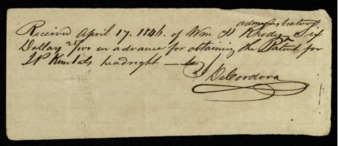 administrator of
Received April 17. 1846. of Wm H Rhodes Six
Dollars in advance for obtaining the Patent for
headright
J DeCordova